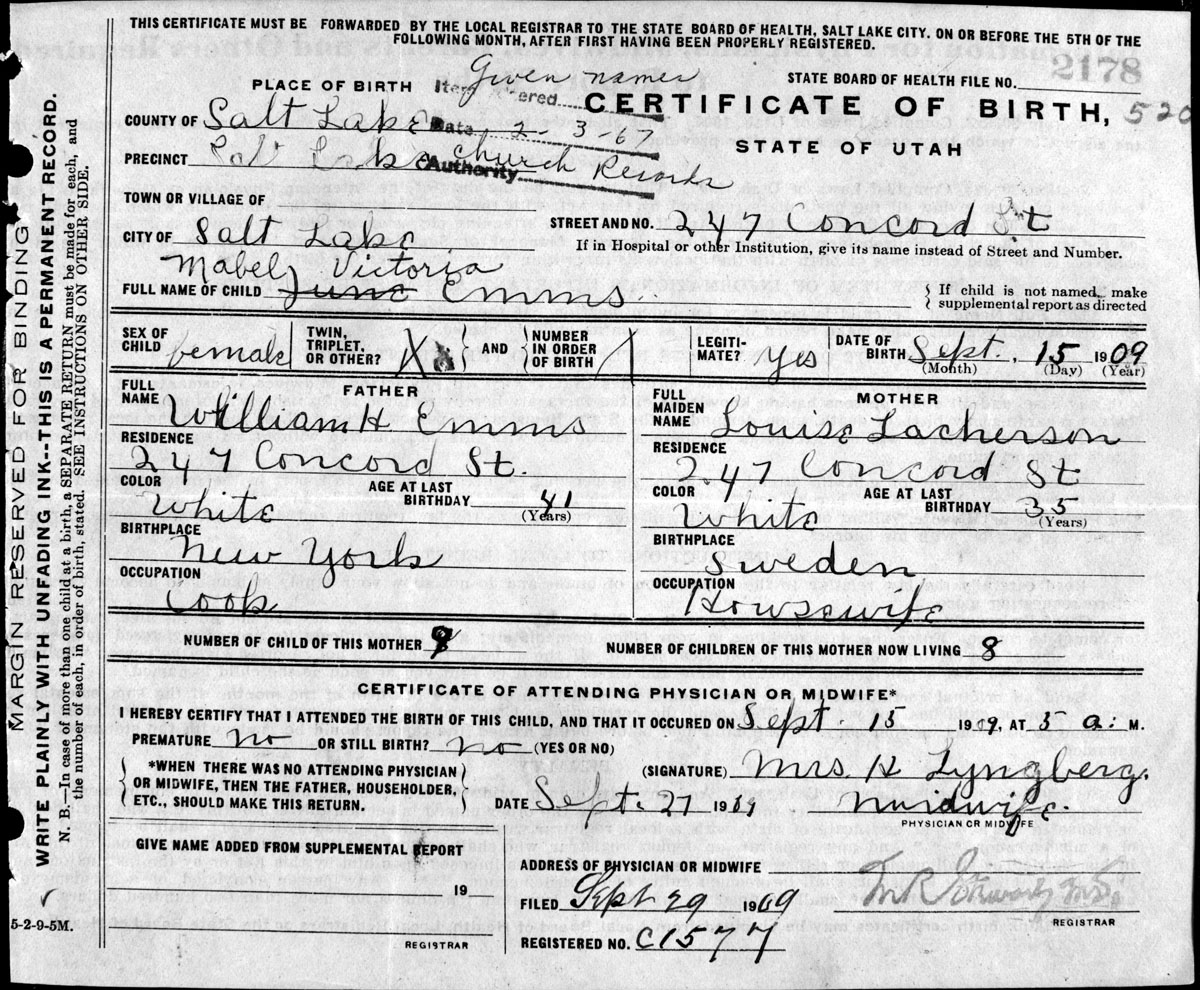 THIS CERTIFICATE MUST BE FORWARDED BY THE LOCAL REGISTRAR TO THE STATE BOARD OF HEALTH, SALT LAKE CITY, ON OR BEFORE THE 5TH OF THE
FOLLOWING MONTH, AFTER FIRST HAVING BEEN PROPERLY REGISTERED.
2178
PLACE OF BIRTH
Given names
STATE BOARD OF HEALTH FILE NO.
CERTIFICATE OF BIRTH, 520
COUNTY OF Salt Lake
Date 2-3-67
STATE OF UTAH
PRECINCT Salt Lake
Authority Church Records
TOWN OR VILLAGE OF
STREET AND NO. 247 Concord St
CITY OF Salt Lake
If in Hospital or other Institution, give its name instead of Street and Number.
Mabel Victoria
FULL NAME OF CHILD June Emms
If child is not named, make
supplemental report as directed
SEX OF CHILD female
TWIN, TRIPLET, OR OTHER? X
AND NUMBER IN ORDER OF BIRTH /
LEGITIMATE? Yes
DATE OF BIRTH Sept. 15 1909
(Month) (Day) (Year)
FATHER
FULL NAME William H Emms
RESIDENCE
247 Concord St.
COLOR White
AGE AT LAST BIRTHDAY 41 (Years)
BIRTHPLACE
New York
OCCUPATION
Cook
MOTHER
FULL MAIDEN NAME Louise Lacherson
RESIDENCE
247 Concord St
COLOR White
AGE AT LAST BIRTHDAY 35 (Years)
BIRTHPLACE
Sweden
OCCUPATION
Howsewife
NUMBER OF CHILD OF THIS MOTHER
NUMBER OF CHILDREN OF THIS MOTHER NOW LIVING 8
CERTIFICATE OF ATTENDING PHYSICIAN OR MIDWIFE*
I HEREBY CERTIFY THAT I ATTENDED THE BIRTH OF THIS CHILD, AND THAT IT OCCURED ON Sept. 15 1909, AT 5 a. M.
PREMATURE no OR STILL BIRTH? no (YES OR NO)
*WHEN THERE WAS NO ATTENDING PHYSICIAN
OR MIDWIFE, THEN THE FATHER, HOUSEHOLDER,
ETC., SHOULD MAKE THIS RETURN.
(SIGNATURE) Mrs. H Lyngberg.
DATE Sept. 27 1909 Midwife.
PHYSICIAN OR MIDWIFE
GIVE NAME ADDED FROM SUPPLEMENTAL REPORT
19
REGISTRAR
ADDRESS OF PHYSICIAN OR MIDWIFE
FILED Sept 29 1909
REGISTRAR
REGISTERED NO. C1577
MARGIN RESERVED FOR BINDING
WRITE PLAINLY WITH UNFADING INK---THIS IS A PERMANENT RECORD.
N. B.—In case of more than one child at a birth, a SEPARATE RETURN must be made for each, and
the number of each, in order of birth, stated. SEE INSTRUCTIONS ON OTHER SIDE.
5-2-9-5M.